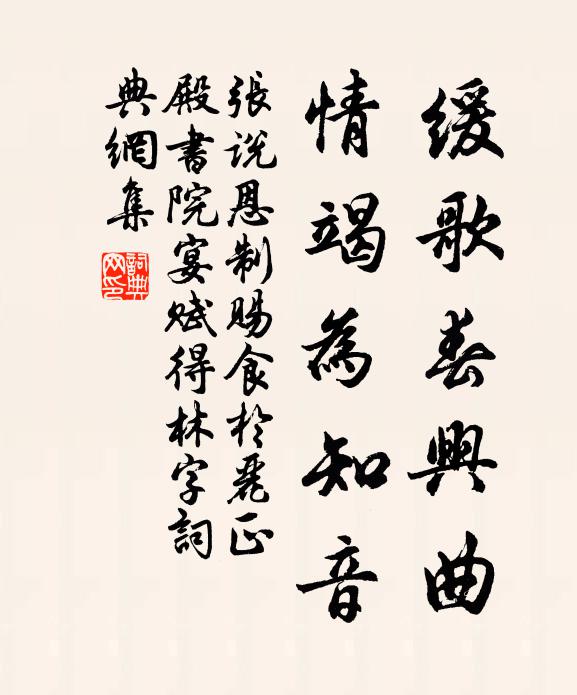 緩歌春興曲
情竭為知音
張說恩制賜食於麗正
殿書院宴賦得林字詞
典網集
詞典網印